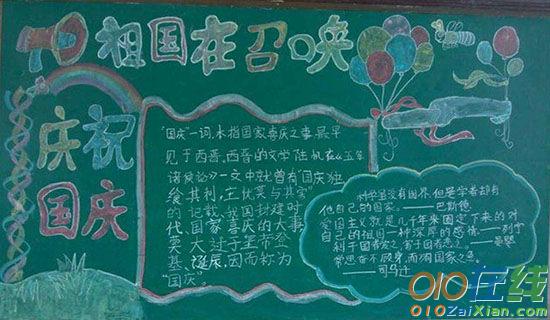 祖国在召唤
庆祝
国庆
"国庆"一词，本指国家喜庆之事，最早
见于西晋，西晋的文学陆机在《五等
诸侯论》一文中就曾有"国庆独
飨其利，主忧莫与其害"
的记载，我国封建时
代、国家喜庆的大事
莫大过于皇帝登
基、诞辰，因而称为
"国庆。
科学虽没有国界，但是学者却有
他自己的国家。——巴斯德
爱国主义就是几千年来固定下来的对
自己的祖国一种深厚的感情。——列宁
利于国者爱之，害于国者恶之。——晏婴
常思奋不顾身，而殉国家之急。
——司马迁
010在线
010ZaiXian.com